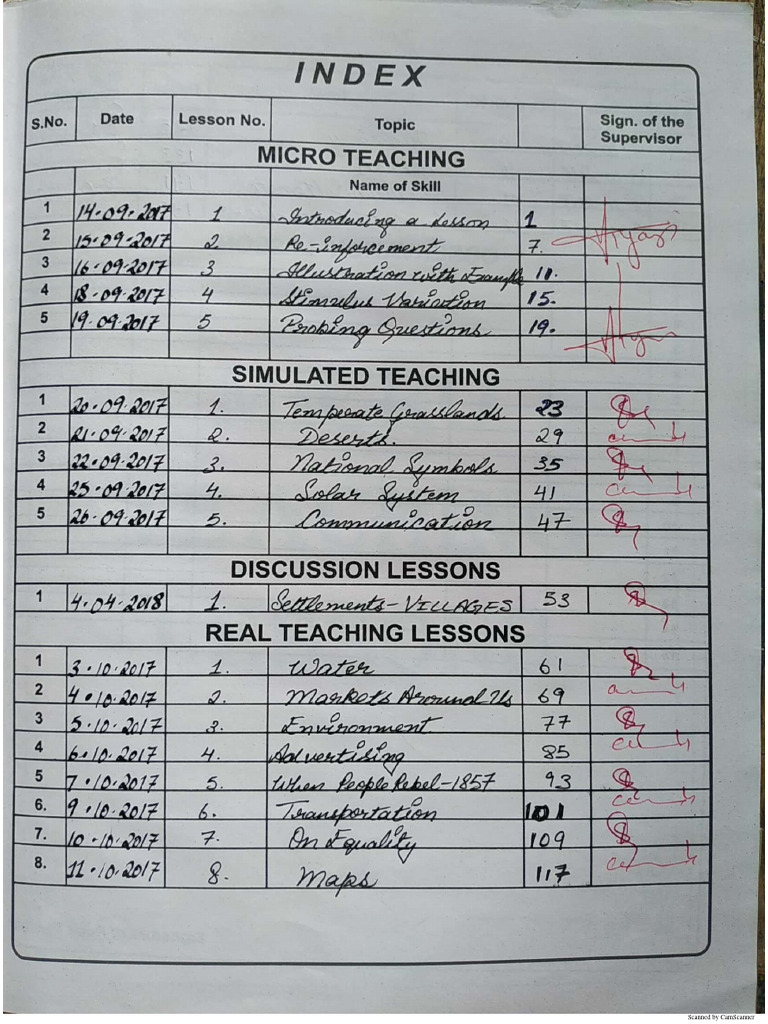 INDEX
S.No. Date Lesson No. Topic Sign. of the Supervisor
MICRO TEACHING
Name of Skill
1 14.09.2017 1 Introducing a Lesson 1
2 15.09.2017 2 Re-inforcement 7.
3 16.09.2017 3 Illustration with Example 11.
4 18.09.2017 4 Stimulus Variation 15.
5 19.09.2017 5 Probing Questions 19.
SIMULATED TEACHING
1 20.09.2017 1. Temperate Grasslands. 23
2 21.09.2017 2. Deserts. 29
3 22.09.2017 3. National Symbols 35
4 25.09.2017 4. Solar System 41
5 26.09.2017 5. Communication 47
DISCUSSION LESSONS
1 4.04.2018 1. Settlements-VILLAGES 53
REAL TEACHING LESSONS
1 3.10.2017 1. Water 61
2 4.10.2017 2. Markets Around Us 69
3 5.10.2017 3. Environment 77
4 6.10.2017 4. Advertising 85
5 7.10.2017 5. When People Rebel-1857 93
6. 9.10.2017 6. Transportation 101
7. 10.10.2017 7. On Equality 109
8. 11.10.2017 8. Maps 117
Scanned by CamScanner